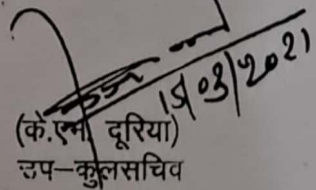 15/03/2021
(के.एन. दूरिया)
उप-कुलसचिव